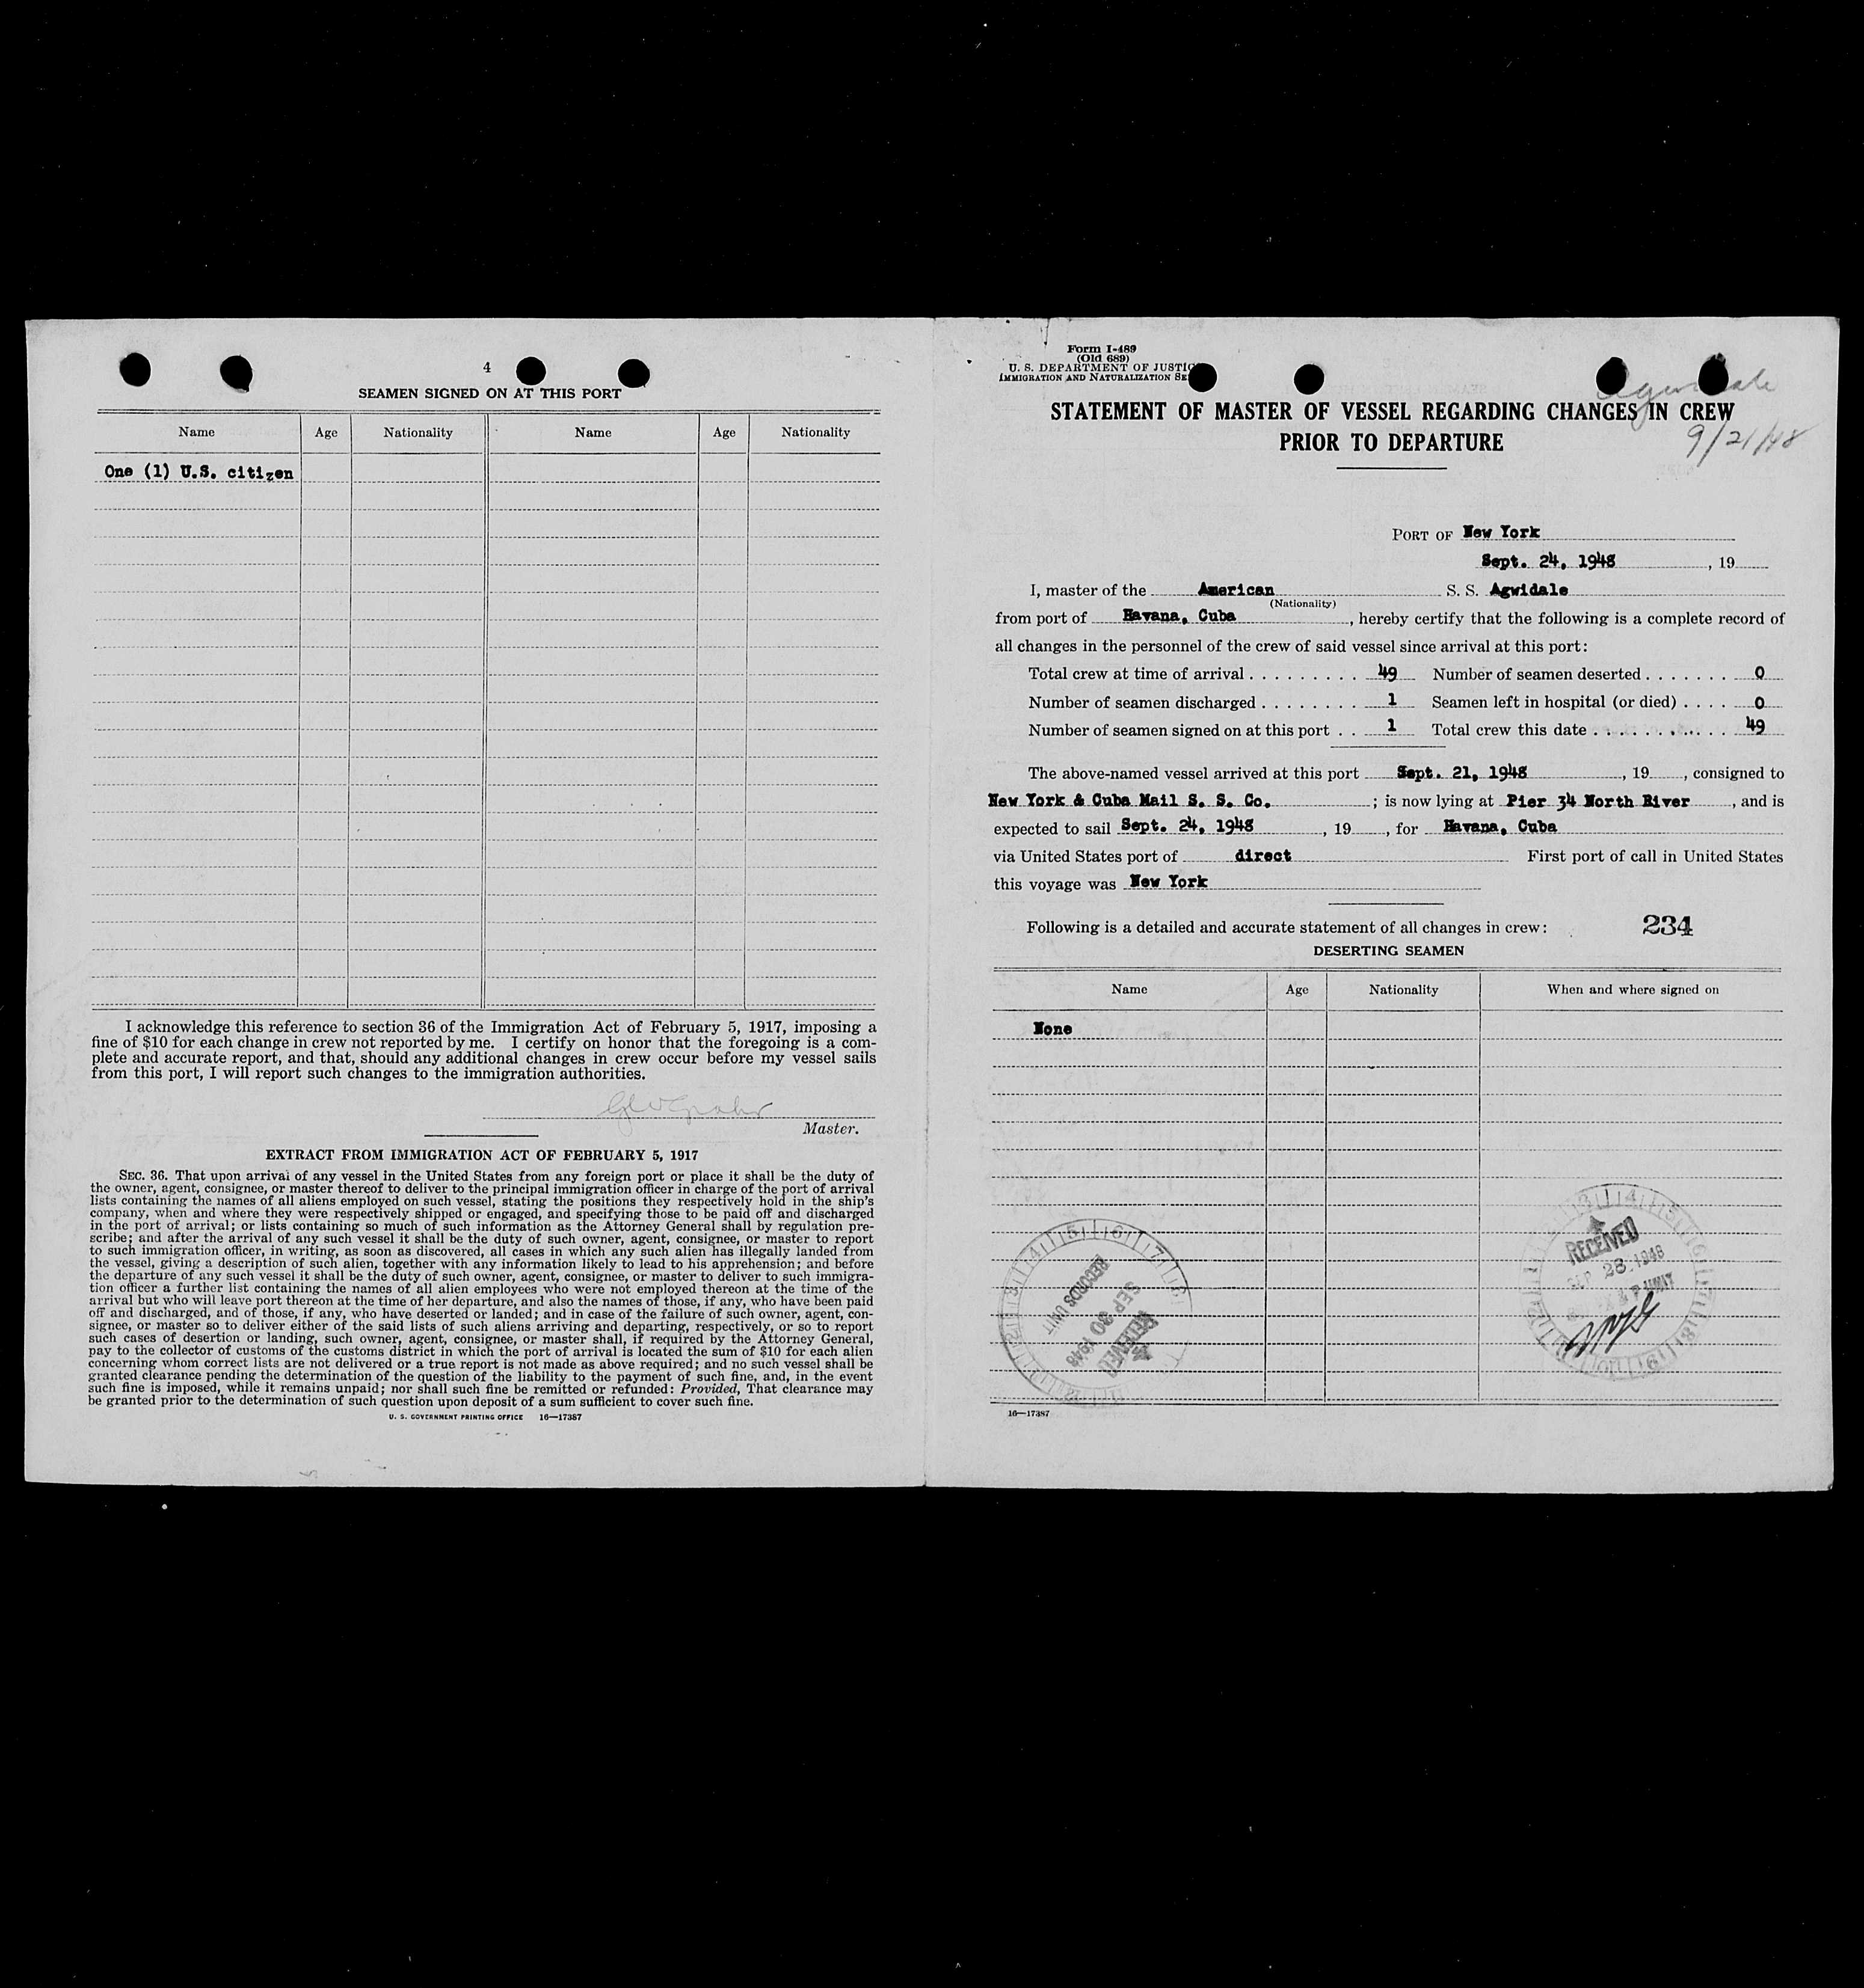 4
SEAMEN SIGNED ON AT THIS PORT
Name Age Nationality Name Age Nationality
One (1) U.S. citizen
I acknowledge this reference to section 36 of the Immigration Act of February 5, 1917, imposing a
fine of $10 for each change in crew not reported by me. I certify on honor that the foregoing is a com-
plete and accurate report, and that, should any additional changes in crew occur before my vessel sails
from this port, I will report such changes to the immigration authorities.
Master.
EXTRACT FROM IMMIGRATION ACT OF FEBRUARY 5, 1917
SEC. 36. That upon arrival of any vessel in the United States from any foreign port or place it shall be the duty of
the owner, agent, consignee, or master thereof to deliver to the principal immigration officer in charge of the port of arrival
lists containing the names of all aliens employed on such vessel, stating the positions they respectively hold in the ship's
company, when and where they were respectively shipped or engaged, and specifying those to be paid off and discharged
in the port of arrival; or lists containing so much of such information as the Attorney General shall by regulation pre-
scribe; and after the arrival of any such vessel it shall be the duty of such owner, agent, consignee, or master to report
to such immigration officer, in writing, as soon as discovered, all cases in which any such alien has illegally landed from
the vessel, giving a description of such alien, together with any information likely to lead to his apprehension; and before
the departure of any such vessel it shall be the duty of such owner, agent, consignee, or master to deliver to such immigra-
tion officer a further list containing the names of all alien employees who were not employed thereon at the time of the
arrival but who will leave port thereon at the time of her departure, and also the names of those, if any, who have been paid
off and discharged, and of those, if any, who have deserted or landed; and in case of the failure of such owner, agent, con-
signee, or master so to deliver either of the said lists of such aliens arriving and departing, respectively, or so to report
such cases of desertion or landing, such owner, agent, consignee, or master shall, if required by the Attorney General,
pay to the collector of customs of the customs district in which the port of arrival is located the sum of $10 for each alien
concerning whom correct lists are not delivered or a true report is not made as above required; and no such vessel shall be
granted clearance pending the determination of the question of the liability to the payment of such fine, and, in the event
such fine is imposed, while it remains unpaid; nor shall such fine be remitted or refunded: Provided, That clearance may
be granted prior to the determination of such question upon deposit of a sum sufficient to cover such fine.
U. S. GOVERNMENT PRINTING OFFICE 16—17387
Form I-489
(Old 689)
U. S. DEPARTMENT OF JUSTIC
IMMIGRATION AND NATURALIZATION SE
STATEMENT OF MASTER OF VESSEL REGARDING CHANGES IN CREW
PRIOR TO DEPARTURE
9/21/48
PORT OF New York
Sept. 24, 1948, 19
I, master of the American S. S. Agwidale
(Nationality)
from port of Havana, Cuba, hereby certify that the following is a complete record of
all changes in the personnel of the crew of said vessel since arrival at this port:
Total crew at time of arrival . . . . . . . . . 49 Number of seamen deserted . . . . . . . 0
Number of seamen discharged . . . . . . . . 1 Seamen left in hospital (or died) . . . . 0
Number of seamen signed on at this port . . 1 Total crew this date . . . . . . . . . . . 49
The above-named vessel arrived at this port Sept. 21, 1948, 19, consigned to
New York & Cuba Mail S. S. Co.; is now lying at Pier 34 North River, and is
expected to sail Sept. 24, 1948, 19, for Havana, Cuba
via United States port of direct First port of call in United States
this voyage was New York
Following is a detailed and accurate statement of all changes in crew: 234
DESERTING SEAMEN
Name Age Nationality When and where signed on
None
RECORDS UNIT
SEP 30 1948
RECEIVED
RECEIVED
SEP 28 1948
16—17387